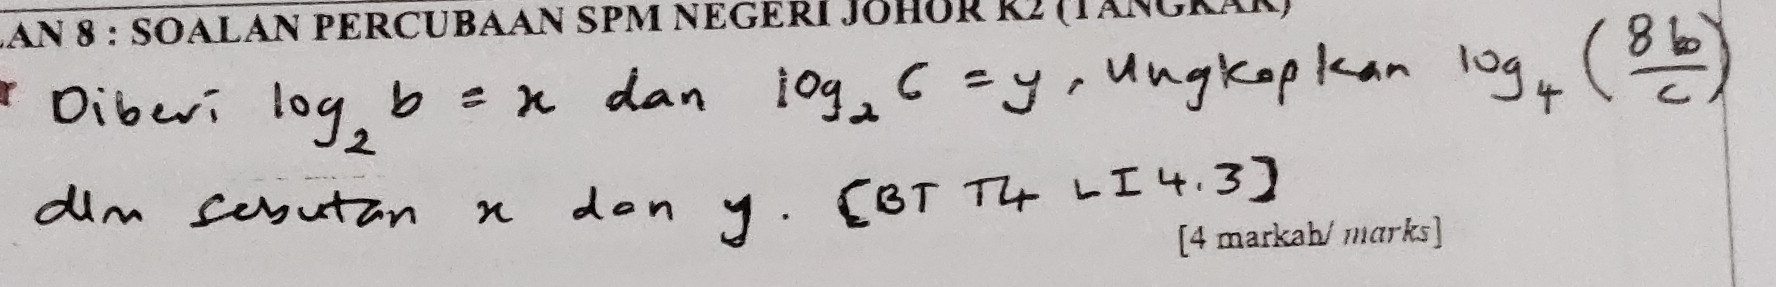 AN 8 : SOALAN PERCUBAAN SPM NEGERI JOHOR K2 (TANGKAK)
Diberi log₂ b = x dan log₂ c = y, Ungkapkan log₄ (8b/c)
dlm sebutan x dan y. [BT T4 LI 4.3]
[4 markah/ marks]